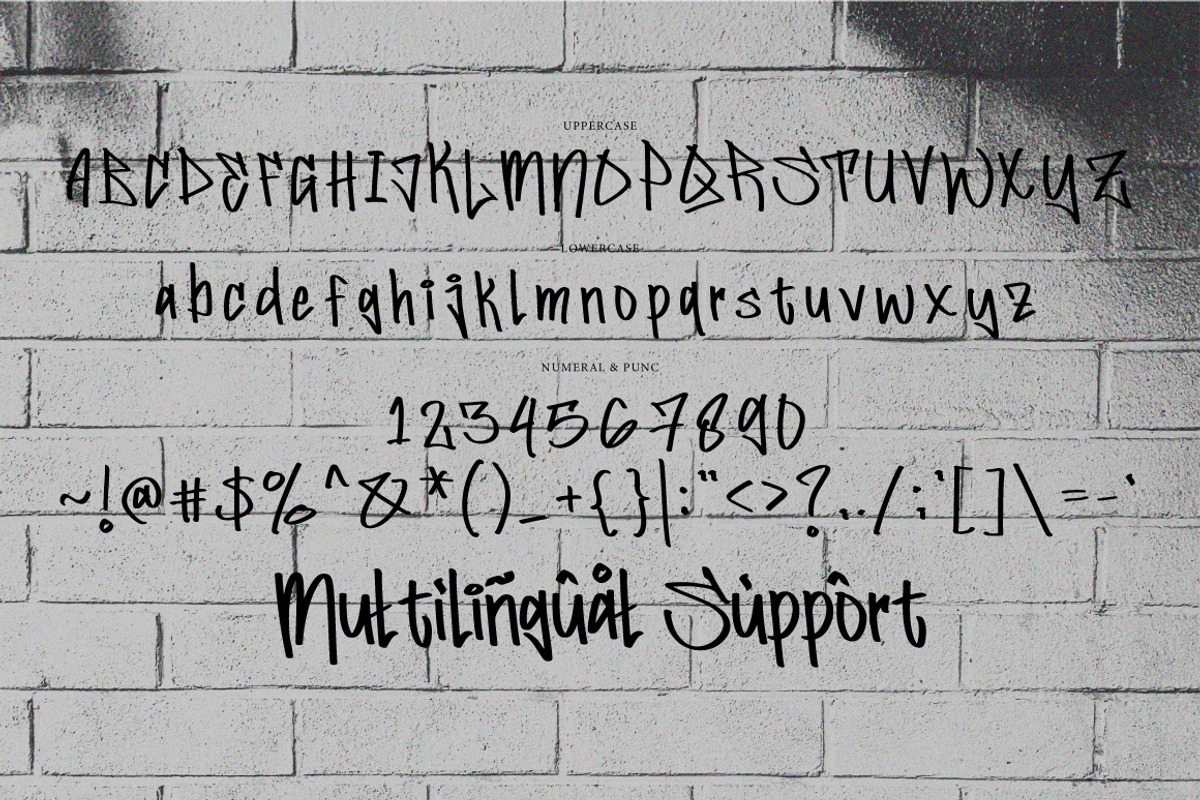 UPPERCASE
ABCDEFGHIJKLMNOPQRSTUVWXYZ
LOWERCASE
abcdefghijklmnopqrstuvwxyz
NUMERAL & PUNC
1234567890
~!@#$%^&*()_+{}|:"<>?,./;'[]\=-`
Multiliñgûål Súppôrt